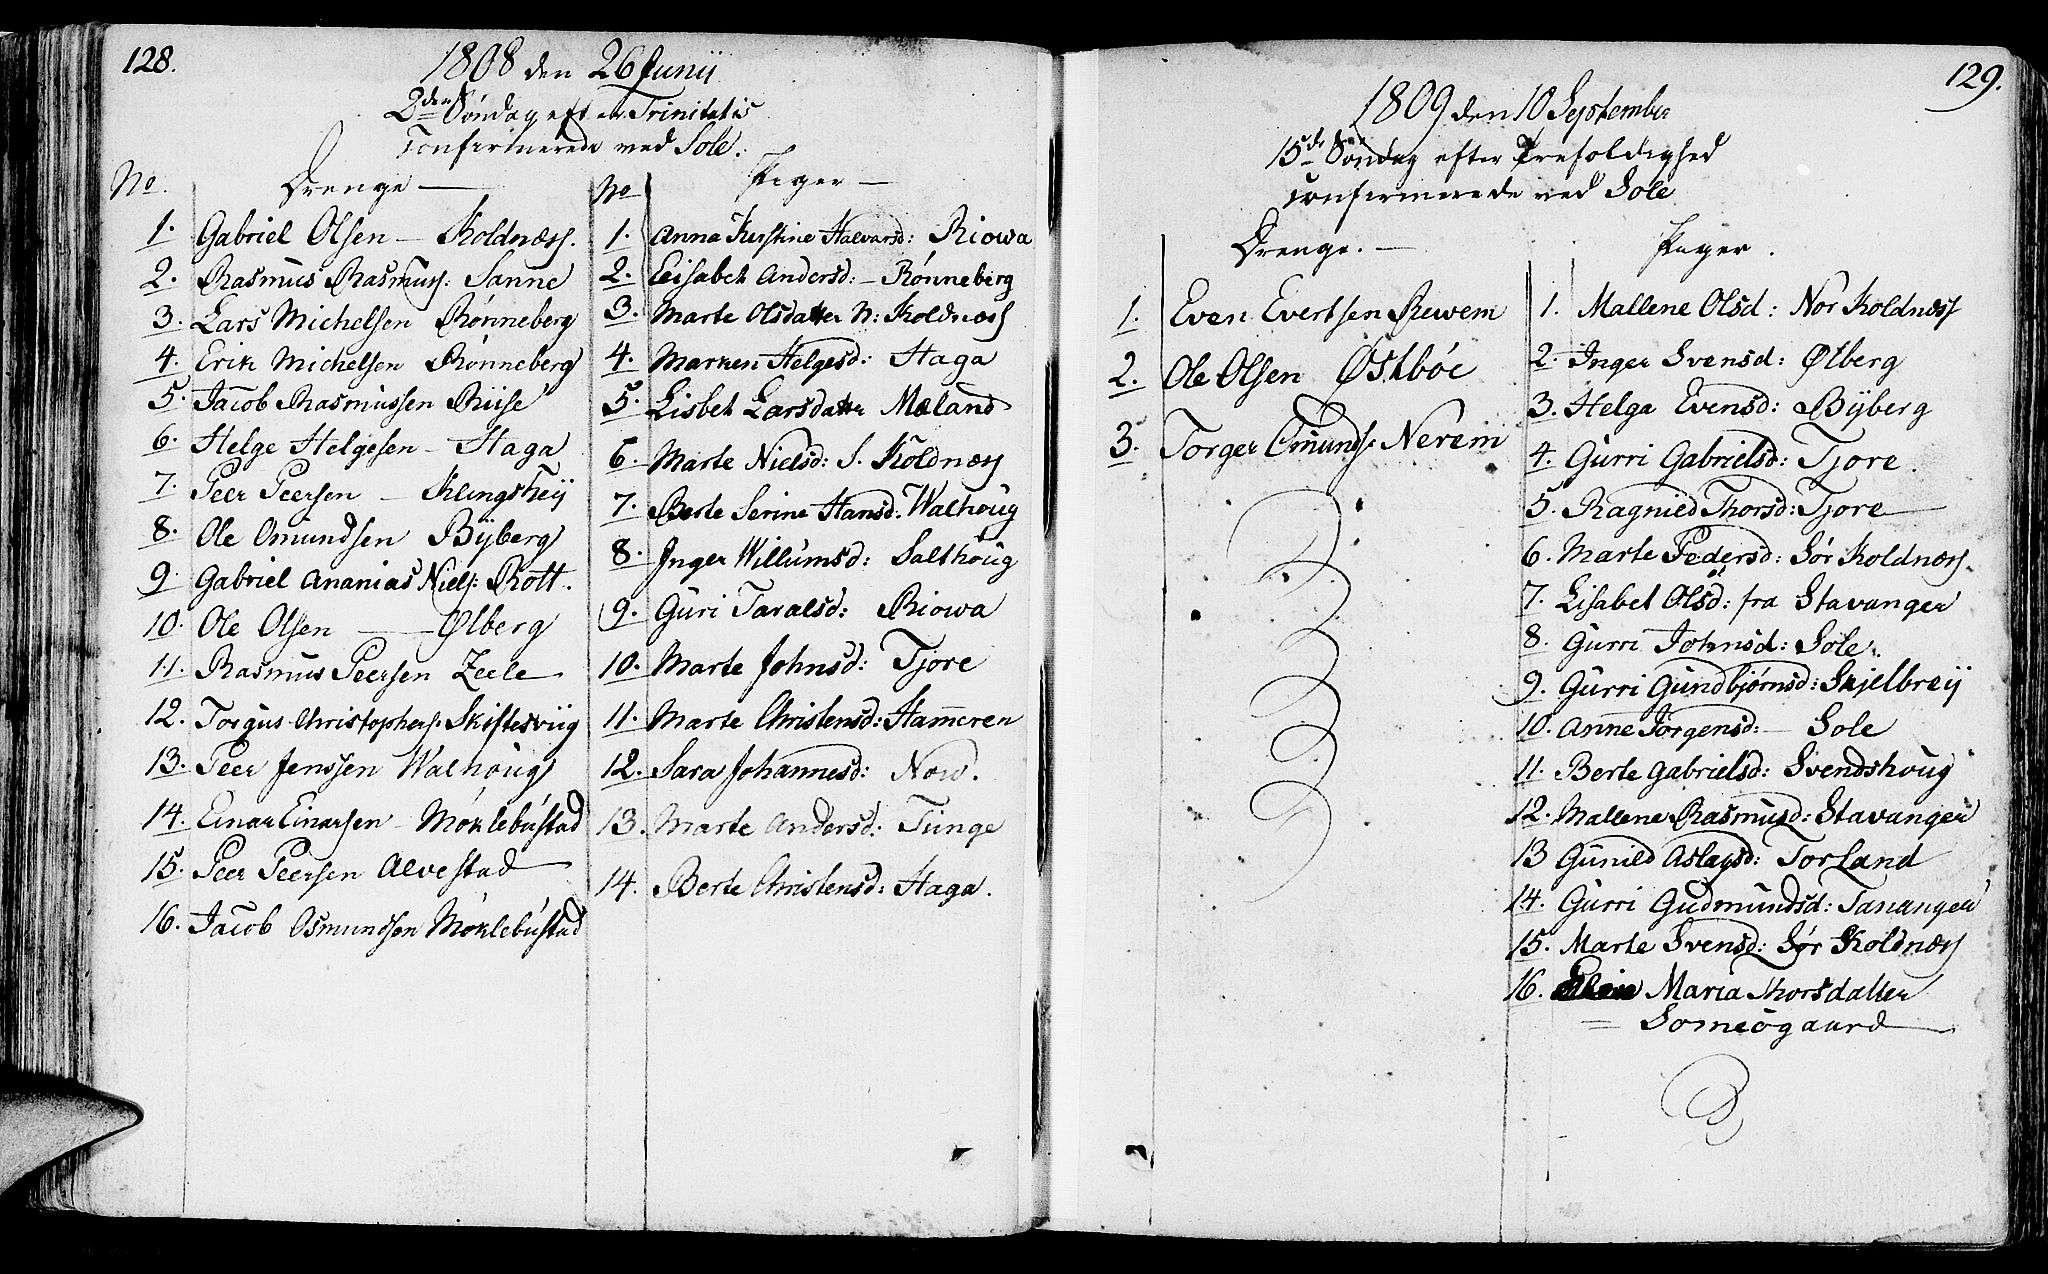 128.
1808 den 26 Junij
2den Søndag efter Trinitatis
Confirmerede ved Sole.
No. Drenge —
1. Gabriel Olsen — Koldnæss.
2. Rasmus Rasmuss: Sanne
3. Lars Michelsen Rønneberg
4. Erik Michelsen Rønneberg
5. Jacob Rasmussen Riise
6. Helge Helgesen — Haga
7. Peer Peersen — Klingsheij
8. Ole Omundsen Bÿberg
9. Gabriel Ananias Niels: Rott.
10. Ole Olsen — Ølberg
11. Rasmus Peersen Zeele
12. Torgus Christophers: Skiftesviig
13. Peer Jenssen Walhoug
14. Einar Einarsen — Møklebustad
15. Peer Peersen Alvestad
16. Jacob Osmundsen Møklebustad
No Piger —
1. Anna Kirstine Halvorsd: Riowa
2. Elisabet Andersd: — Rønneberg
3. Marte Olsdatter N: Koldnæss
4. Marken Helgesd: Haga
5. Lisbet Larsdatter Mæland
6. Marte Nielsd: S. Koldnæss
7. Berte Serine Hansd. Walhoug
8. Inger Willumsd: Salthoug
9. Guri Taralsd: Riowa
10. Marte Johnsd: Tjore
11. Marte Christensd: Hameren
12. Sara Johannesd: Now.
13. Marte Andersd: Tunge
14. Berte Christensd: Haga.
129.
1809 den 10 September
15de Søndag efter Trefoldighed
Confirmerede ved Sole
Drenge. —
1. Even Evertsen Rewem
2. Ole Olsen Østbøe
3. Torger Omunds: Nerem
Piger.
1. Mallene Olsd: Nor Koldness
2. Inger Svensd: Ølberg
3. Helga Evensd: Bÿberg
4. Gurri Gabrielsd: Tjore.
5. Ragnild Thorsd: Tjore
6. Marte Pedersd: Sør Koldnæss.
7. Lisabet Olsd: fra Stavanger
8. Gurri Johnsd: Sole.
9. Gurri Gundbjørnsd: Skjelbreij
10. Anne Jørgensd: — Sole
11. Berte Gabrielsd: Svendshoug
12. Mallene Rasmusd: Stavanger
13 Gunild Aslagsd: Torland
14. Gurri Gudmundsd: Tananger
15. Marte Svensd: Sør Koldnæss
16. Maria Thorsdatter
= Sømesgaard